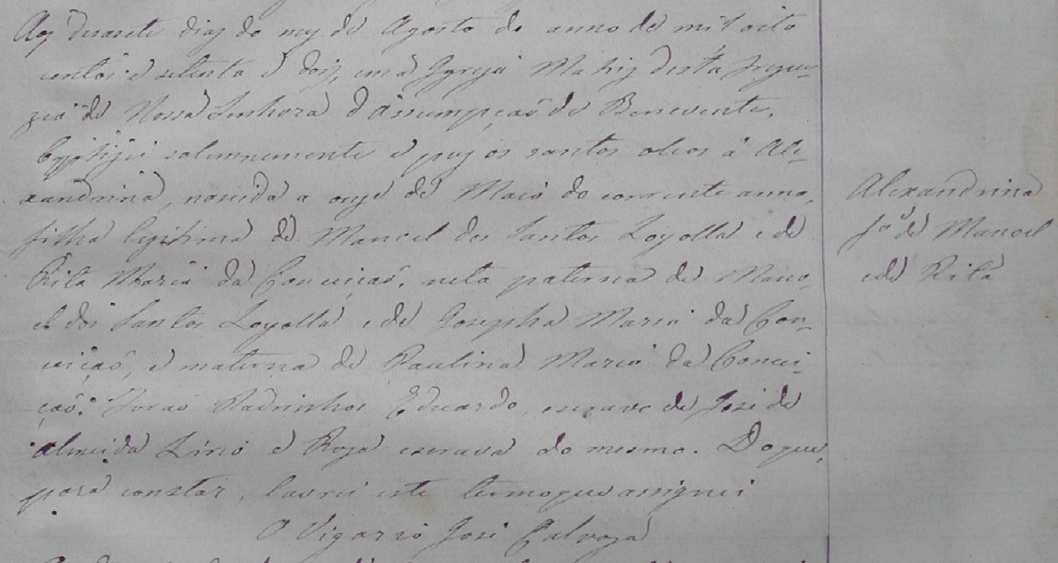 Aos desasete dias do mez de Agosto do anno de mil oito
centos e setenta e dois, em a Igreja Matriz desta fregue-
zia de Nossa Senhora d'Assumpçaõ de Benevente,
baptizei solemnemente e puz os santos oleos á Ale-
xandrina, nascida a onze de Maio do corrente anno,
filha legitima de Manoel dos Santos Loyolla e de
Rita Maria da Conceiçaõ, neta paterna de Mano-
el dos Santos Loyolla e de Josepha Maria da Con-
ceiçaõ, e materna de Paulina Maria da Concei-
çaõ. Foraõ Padrinhos Eduardo, escravo de José de
Almeida Lirio e Roza escrava do mesmo. Do que,
para constar, lavrei este termo que assignei
O Vigario José
Alexandrina
fª de Manoel
e de Rita